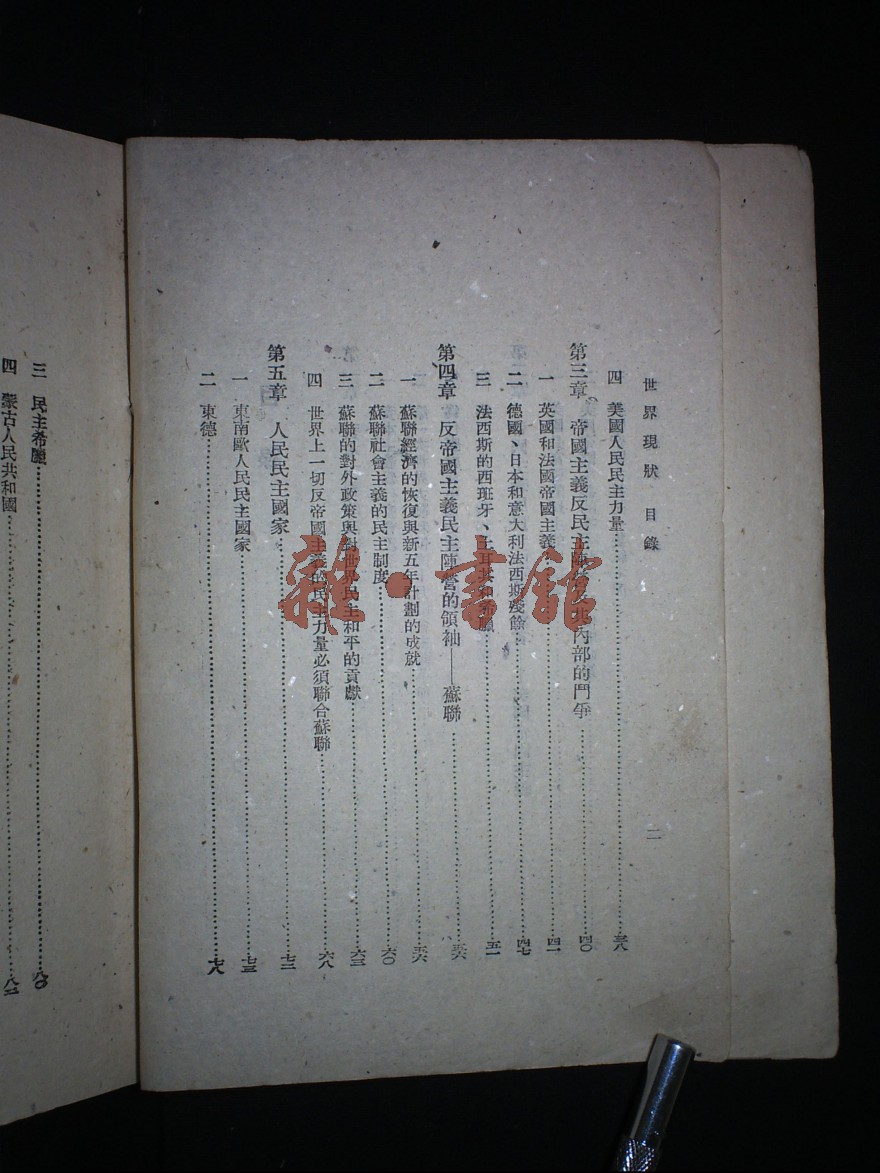 世界現狀 目錄
二
四 美國人民民主力量 三八
第三章 帝國主義反民主陣營及其內部的鬥爭 四〇
一 英國和法國帝國主義 四一
二 德國、日本和意大利法西斯殘餘 四七
三 法西斯的西班牙、土耳其和希臘 五一
第四章 反帝國主義民主陣營的領袖——蘇聯 五六
一 蘇聯經濟的恢復與新五年計劃的成就 五六
二 蘇聯社會主義的民主制度 六〇
三 蘇聯的對外政策與對世界民主和平的貢獻 六三
四 世界上一切反帝國主義的民主力量必須聯合蘇聯 六八
第五章 人民民主國家 七三
一 東南歐人民民主國家 七三
二 東德 七八
三 民主希臘 八〇
四 蒙古人民共和國 八二
雜·書館